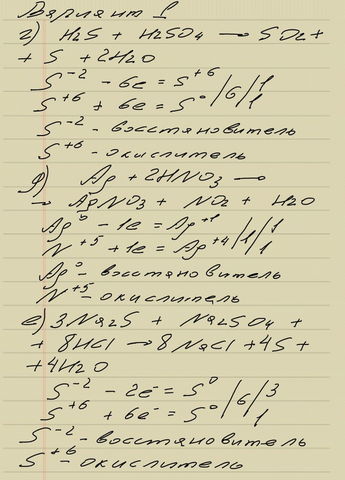 Вариант 1
г) H2S + H2SO4 → SO2 +
+ S + 2H2O
S⁻² - 6e = S⁺⁶ /6/1
S⁺⁶ + 6e = S⁰ /1
S⁻² - восстановитель
S⁺⁶ - окислитель
g) Ag + 2HNO3 →
→ AgNO3 + NO2 + H2O
Ag⁰ - 1e = Ag⁺¹ /1/1
N⁺⁵ + 1e = Ag⁺⁴ /1
Ag⁰ - восстановитель
N⁺⁵ - окислитель
е) 3Na2S + Na2SO4 +
+ 8HCl → 8NaCl + 4S +
+ 4H2O
S⁻² - 2e⁻ = S⁰ /6/3
S⁺⁶ + 6e⁻ = S⁰ /1
S⁻² - восстановитель
S⁺⁶ - окислитель